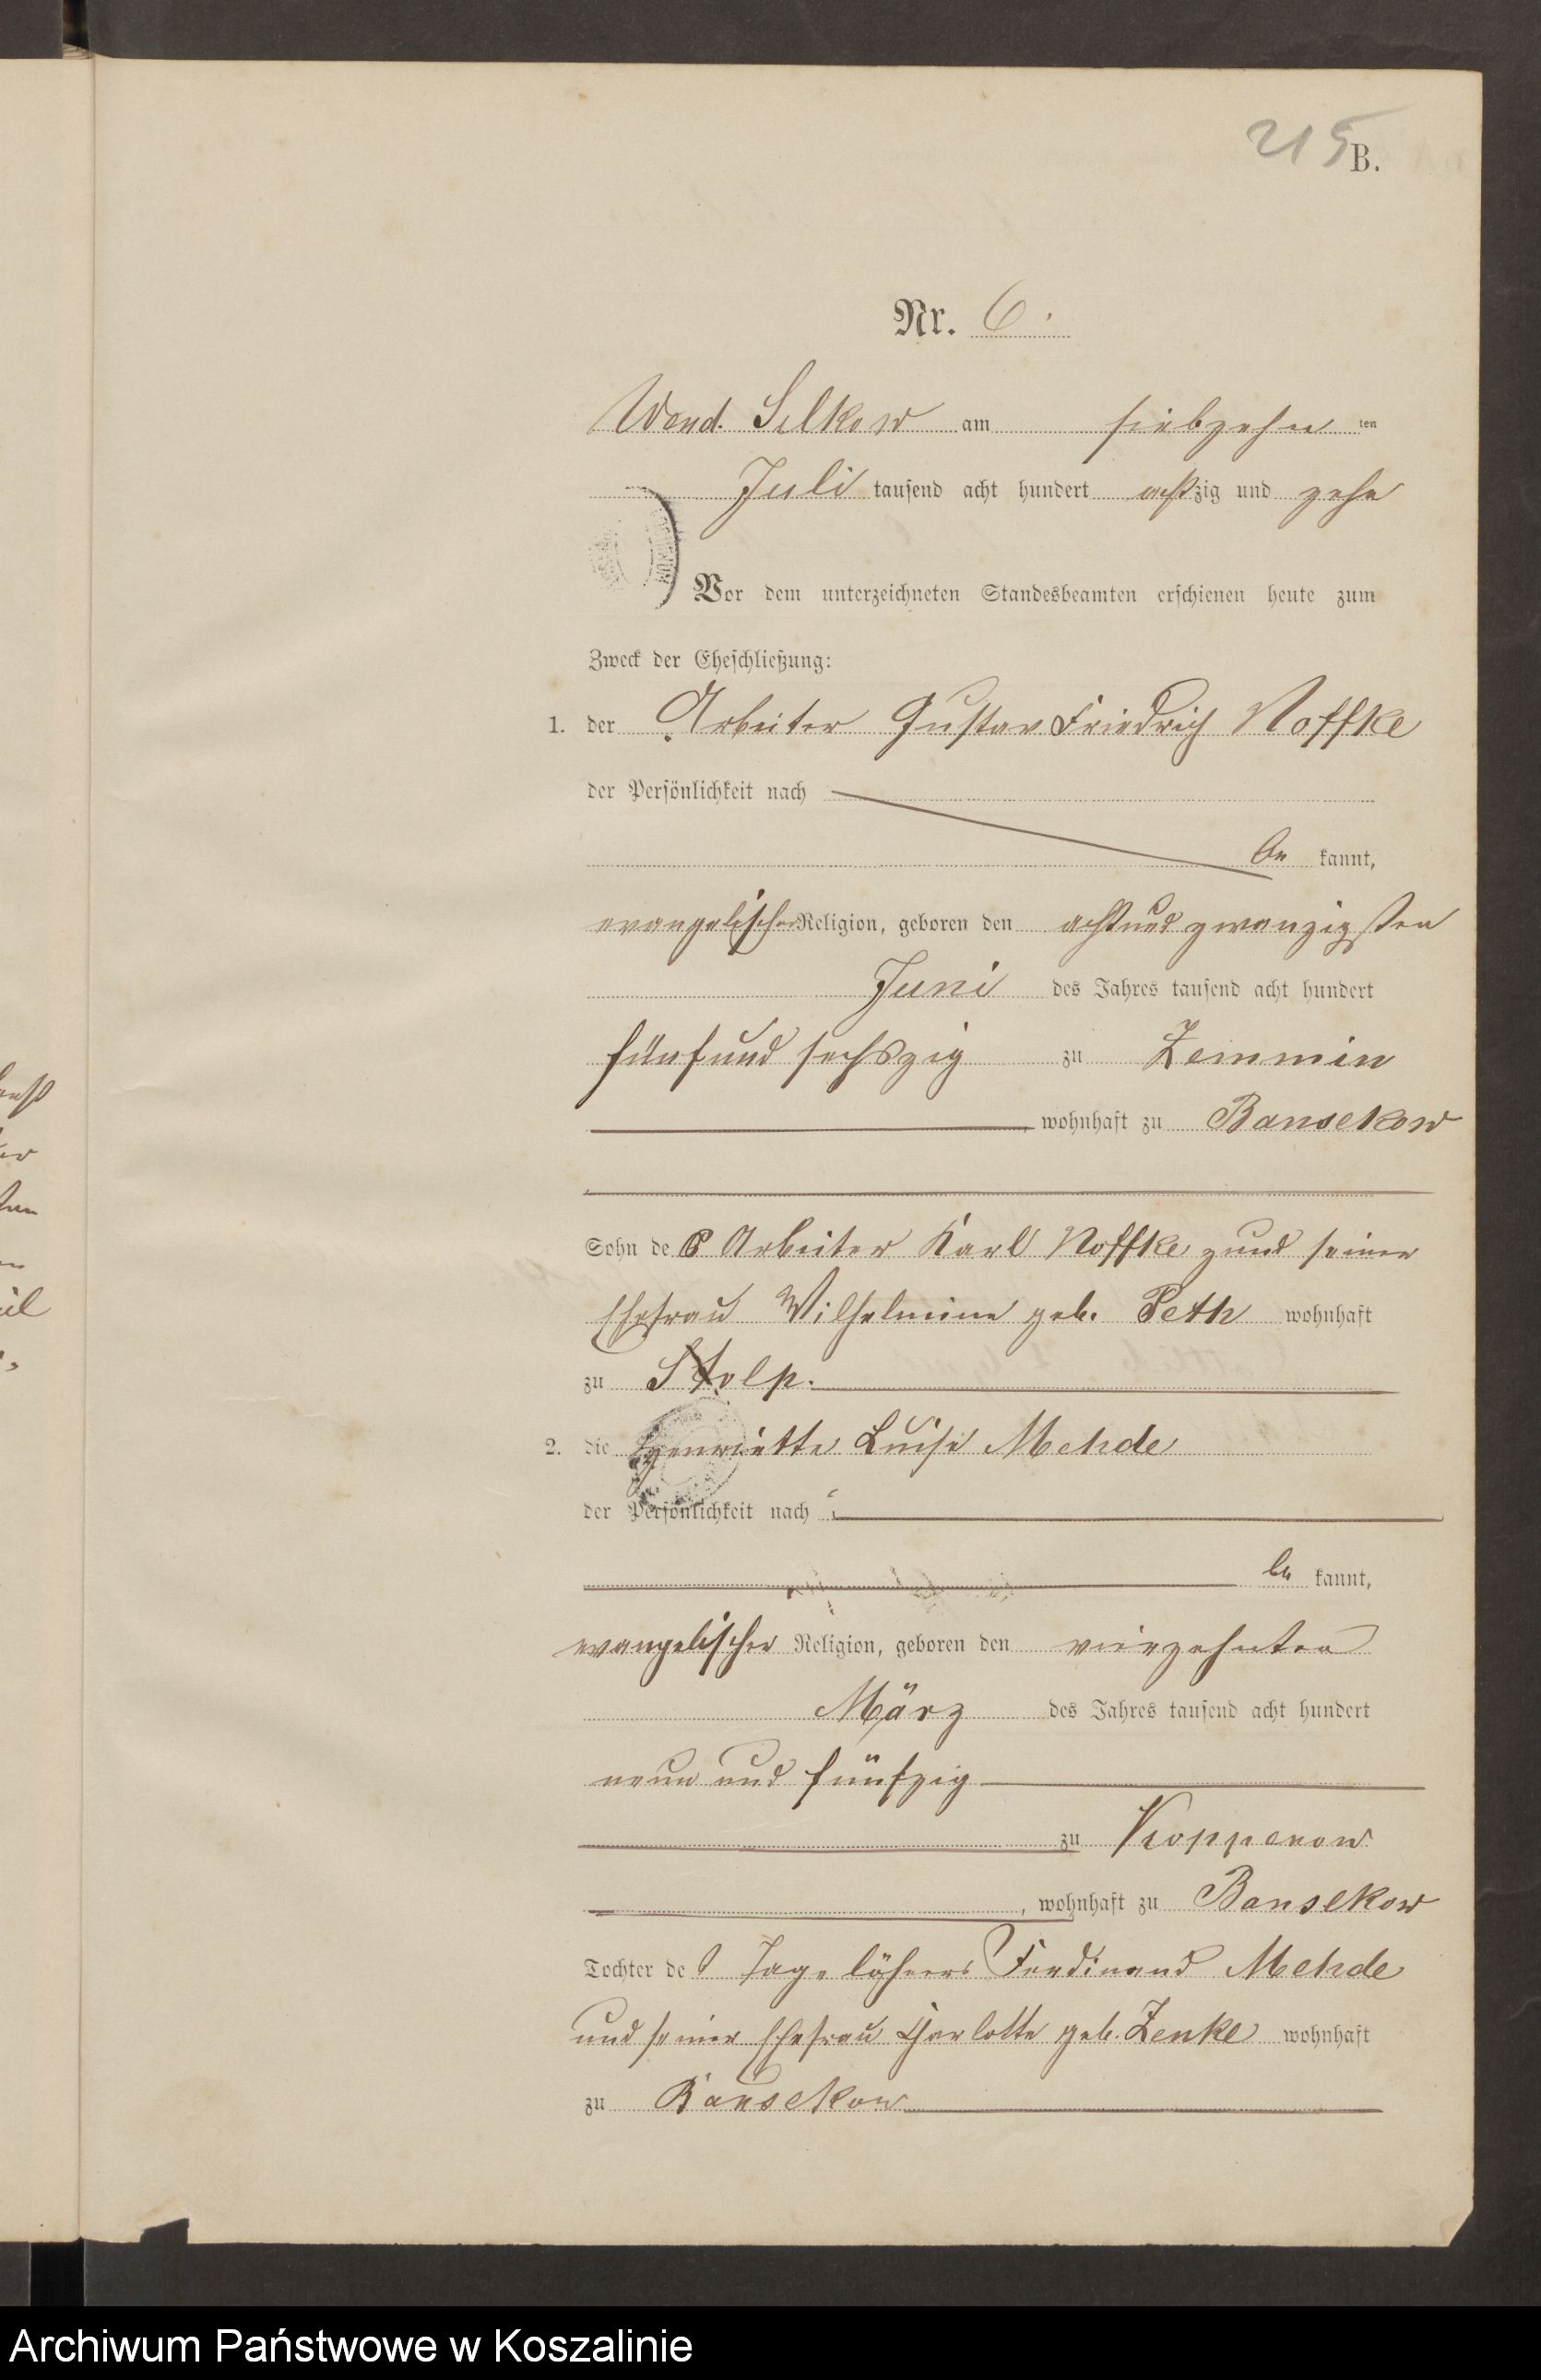 215
B.
Nr. 6.
Wend. Silkow am siebzehn ten
Juli tausend acht hundert achtzig und zehn
Vor dem unterzeichneten Standesbeamten erschienen heute zum
Zweck der Eheschließung:
1. der Arbeiter Gustav Friedrich Noffke
der Persönlichkeit nach
be kannt,
evangelischer Religion, geboren den acht und zwanzigsten
Juni des Jahres tausend acht hundert
fünf und sechszig zu Zemmin
, wohnhaft zu Bansekow
Sohn des Arbeiter Karl Noffke und seiner
Ehefrau Wilhelmine geb. Peth wohnhaft
zu Stolp.
2. die Henriette Luise Mehde
der Persönlichkeit nach
be kannt,
evangelischer Religion, geboren den vierzehnten
März des Jahres tausend acht hundert
neun und fünfzig
zu Vixow
, wohnhaft zu Bansekow
Tochter des Tagelöhners Ferdinand Mehde
und seiner Ehefrau Charlotte geb. Zenke wohnhaft
zu Bansekow
Archiwum Państwowe w Koszalinie